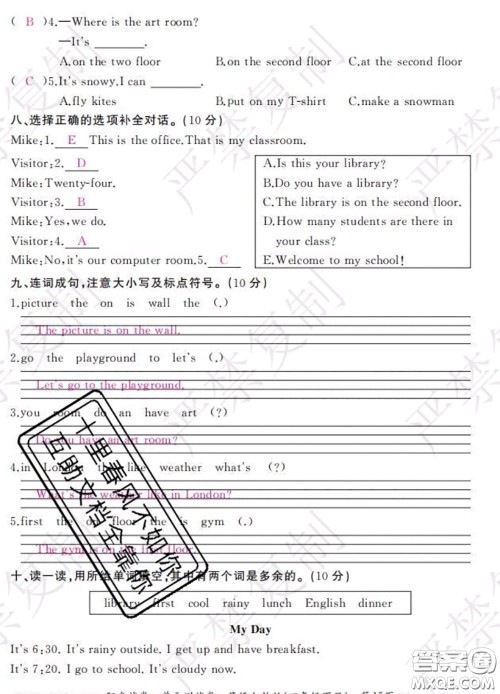 ( B )4.—Where is the art room?
—It's ________.
A.on the two floor B.on the second floor C.at the second floor
( C )5.It's snowy.I can ________.
A.fly kites B.put on my T-shirt C.make a snowman
八、选择正确的选项补全对话。(10 分)
Mike:1. E This is the office.That is my classroom.
Visitor:2. D
Mike:Twenty-four.
Visitor:3. B
Mike:Yes,we do.
Visitor:4. A
Mike:No,it's our computer room.5. C
A.Is this your library?
B.Do you have a library?
C.The library is on the second floor.
D.How many students are there in
your class?
E.Welcome to my school!
九、连词成句,注意大小写及标点符号。(10 分)
1.picture the on is wall the (.)
The picture is on the wall.
2.go the playground to let's (.)
Let's go to the playground.
3.you room do an have art (?)
Do you have an art room?
4.in London the like weather what's (?)
What's the weather like in London?
5.first the on floor the is gym (.)
The gym is on the first floor.
十、读一读,用所给单词填空,其中有两个词是多余的。(10 分)
library first cool rainy lunch English dinner
My Day
It's 6:30. It's rainy outside. I get up and have breakfast.
It's 7:20. I go to school. It's cloudy now.
十里春风不如你
互助文档全靠你
严禁复制
作业精灵